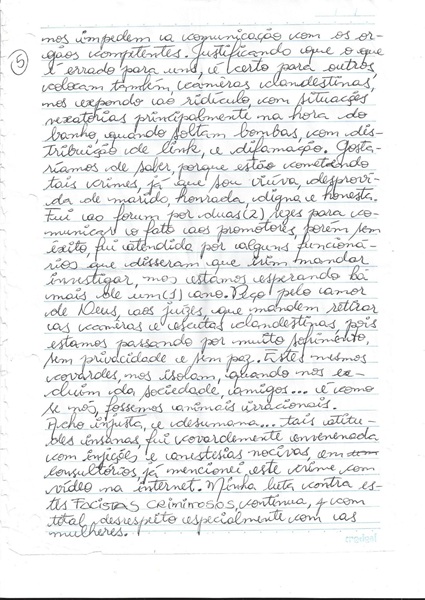 nos impedem a comunicação com os or-
gãos competentes. Justificando que o que
5
é errado para uns, é certo para outros
colocam também, câmeras clandestinas,
nos expondo ao ridículo, com situações
vexatórias principalmente na hora do
banho, quando soltam bombas, com dis-
tribuição de link, e difamação. Gosta-
ríamos de saber, porque estão cometendo
tais crimes, já que sou viúva, desprovi-
da de marido, honrada, digna e honesta.
Fui ao forum por duas(2) vezes para co-
municar o fato aos promotores, porém sem
êxito, fui atendida por alguns funcioná-
rios que disseram que iriam mandar
investigar, mos estamos esperando há
mais de um(1) ano. Peço pelo amor
de Deus, aos juízes, que mandem retirar
as câmeras e escutas clandestinas, pois
estamos passando por muito sofrimento,
sem privacidade e sem paz. Estes mesmos
covardes, nos isolam, quando nos ex-
cluim da sociedade, amigos... é como
se nós, fossemos animais irracionais.
Acho injusta, e desumana... tais atitu-
des insanas, fui covardemente envenenada
com injeções e anestesias nocivas, em
consultórios, já mencionei este crime com
vídeo na internet. Minha luta contra es-
tes FACISTAS CRIMINOSOS, continua, q com
total desrespeito especialmente com as
mulheres.
credeal